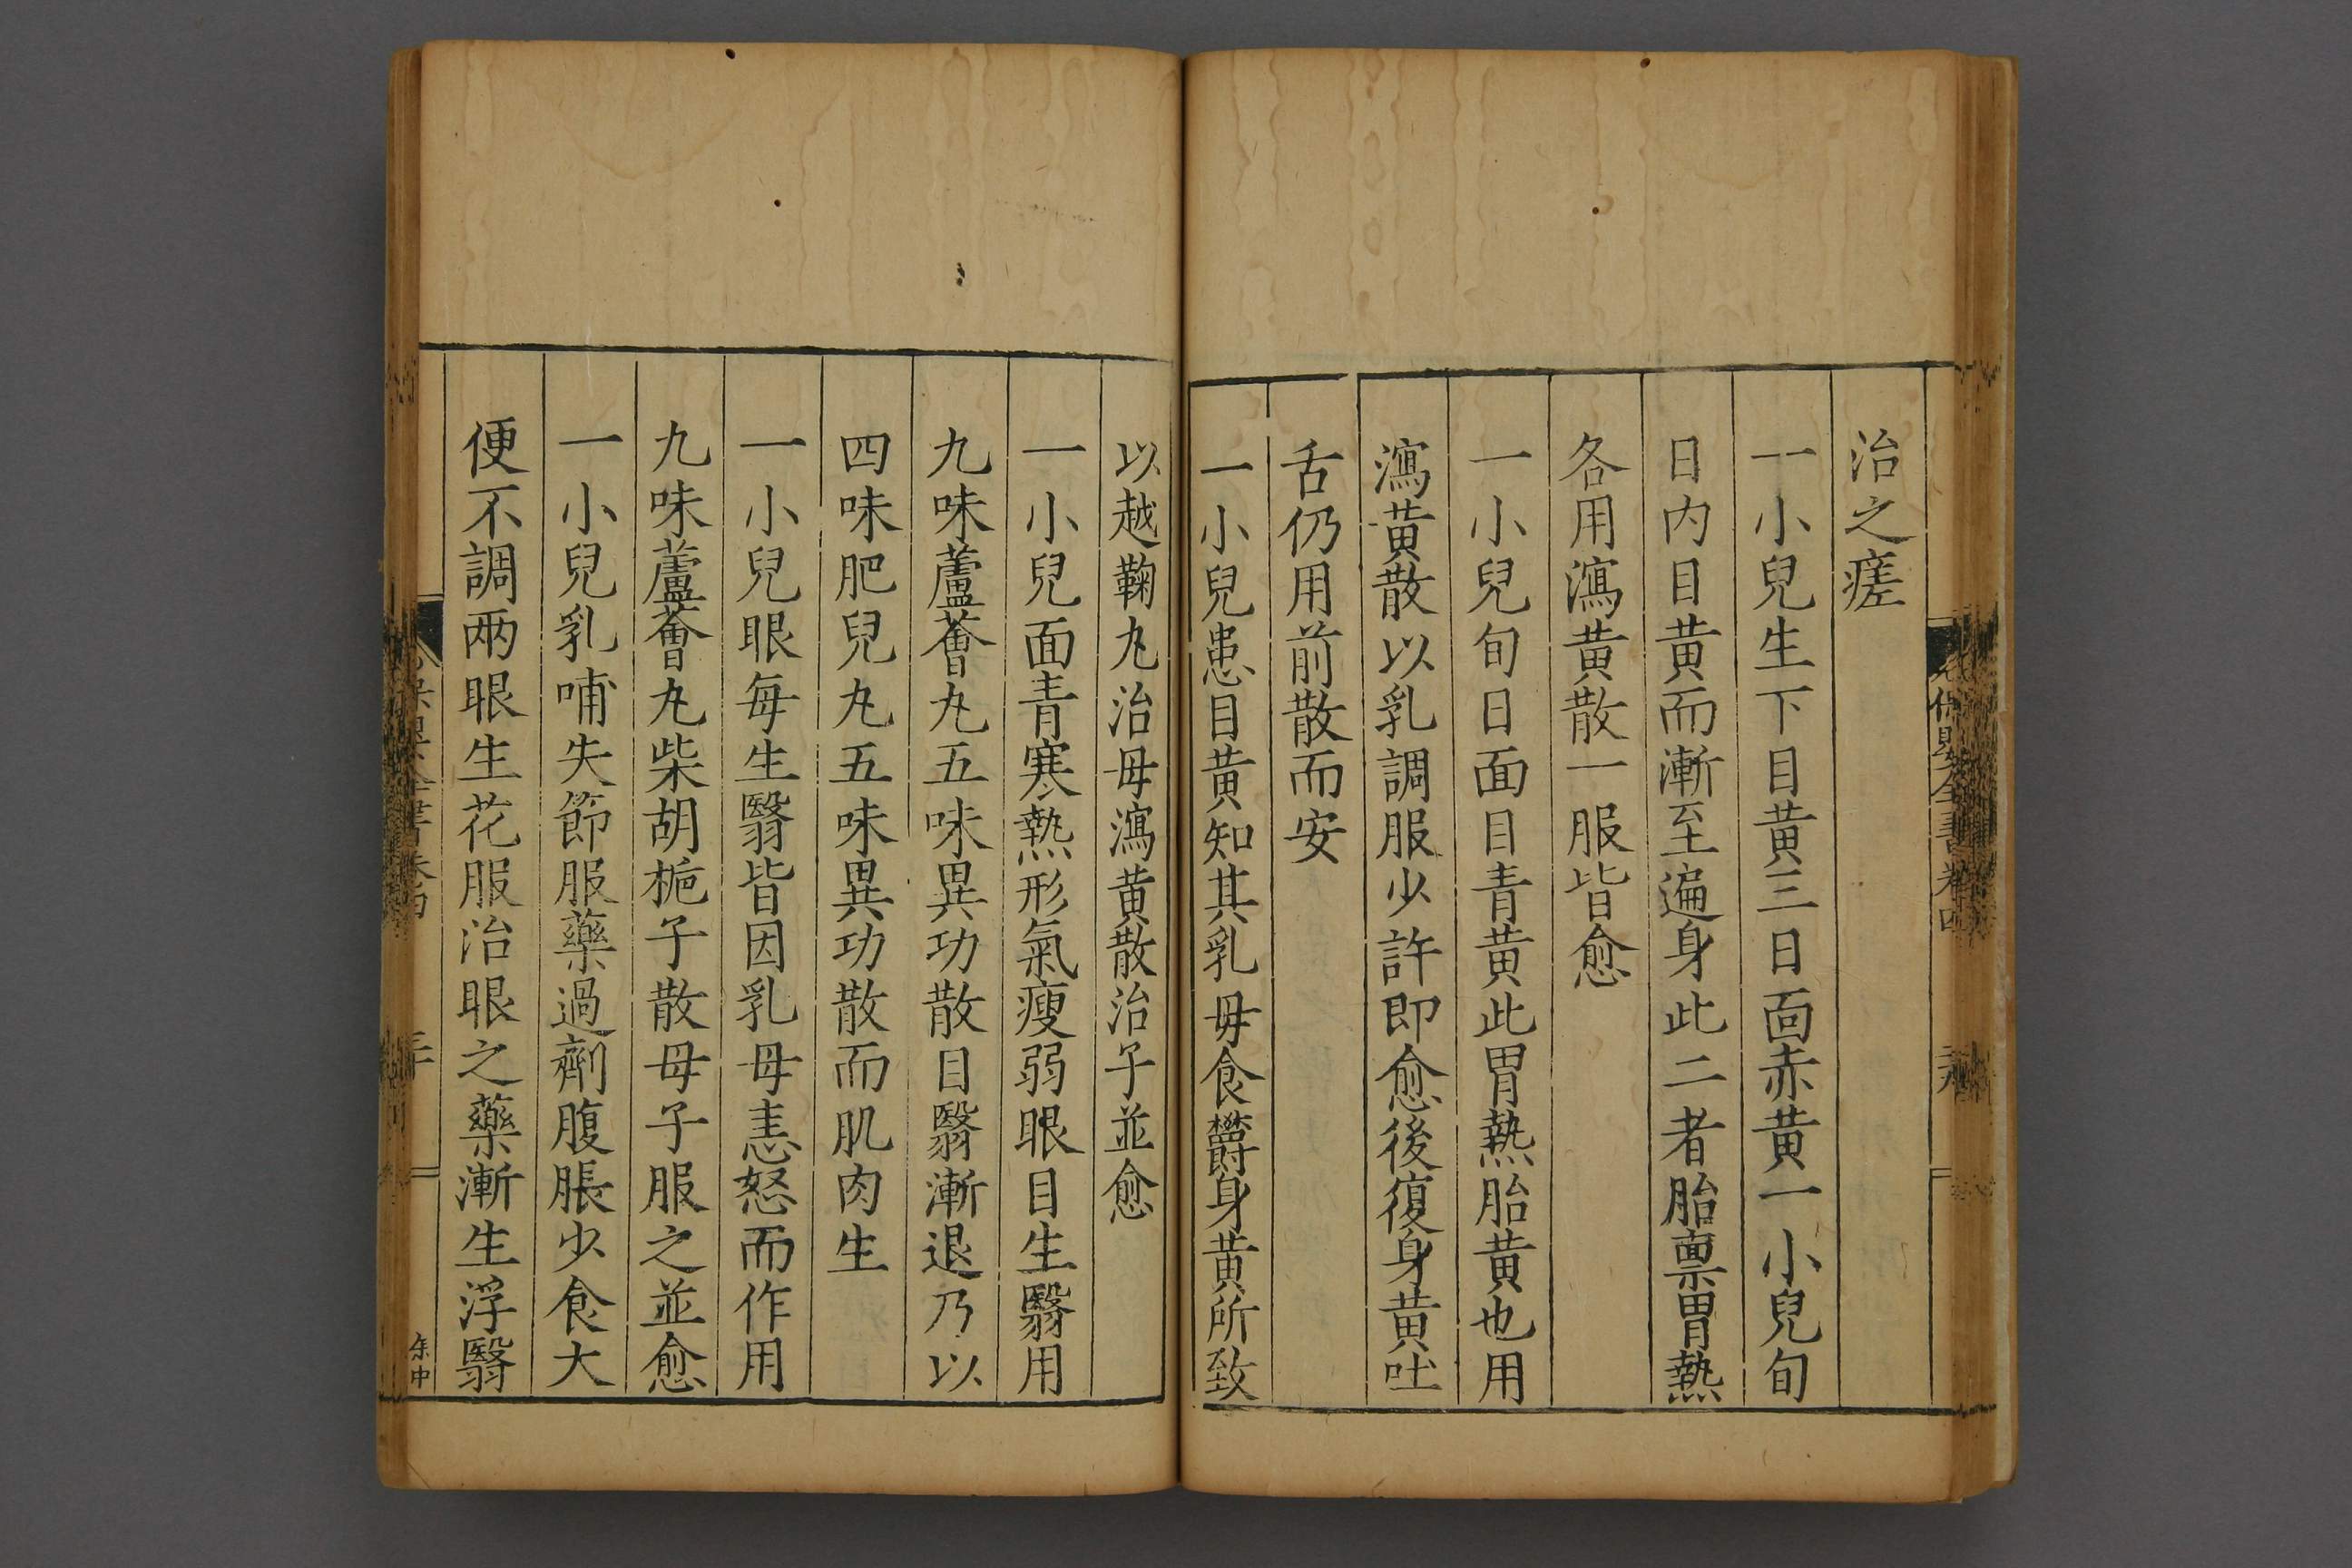 治之瘥
一小兒生下目黄三日面赤黄一小兒旬
日内目黄而漸至遍身此二者胎禀胃熱
各用瀉黄散一服皆愈
一小兒旬日面目青黄此胃熱胎黄也用
瀉黄散以乳調服少許即愈後復身黄吐
舌仍用前散而安
一小兒患目黄知其乳母食欝身黄所致
以越鞠丸治母瀉黄散治子並愈
一小兒面青寒熱形氣瘦弱眼目生翳用
九味蘆薈丸五味異功散目翳漸退乃以
四味肥兒丸五味異功散而肌肉生
一小兒眼每生翳皆因乳母恚怒而作用
九味蘆薈丸柴胡梔子散母子服之並愈
一小兒乳哺失節服藥過劑腹脹少食大
便不調兩眼生花服治眼之藥漸生浮翳